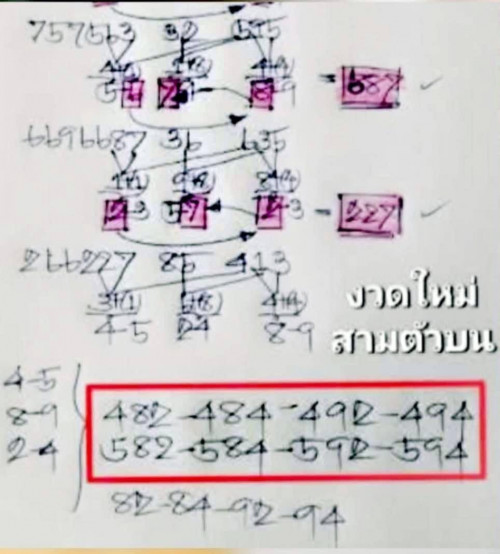 757563 32 595
= 687
6696687 36 635
2-3 5-7 2-3 - 227
266227 85 413
3+(1) 1+(3) 4+(4)
4-5 24 8-9
งวดใหม่
สามตัวบน
4-5
8-9
2-4
482-484-492-494
582-584-592-594
82-84-92-94